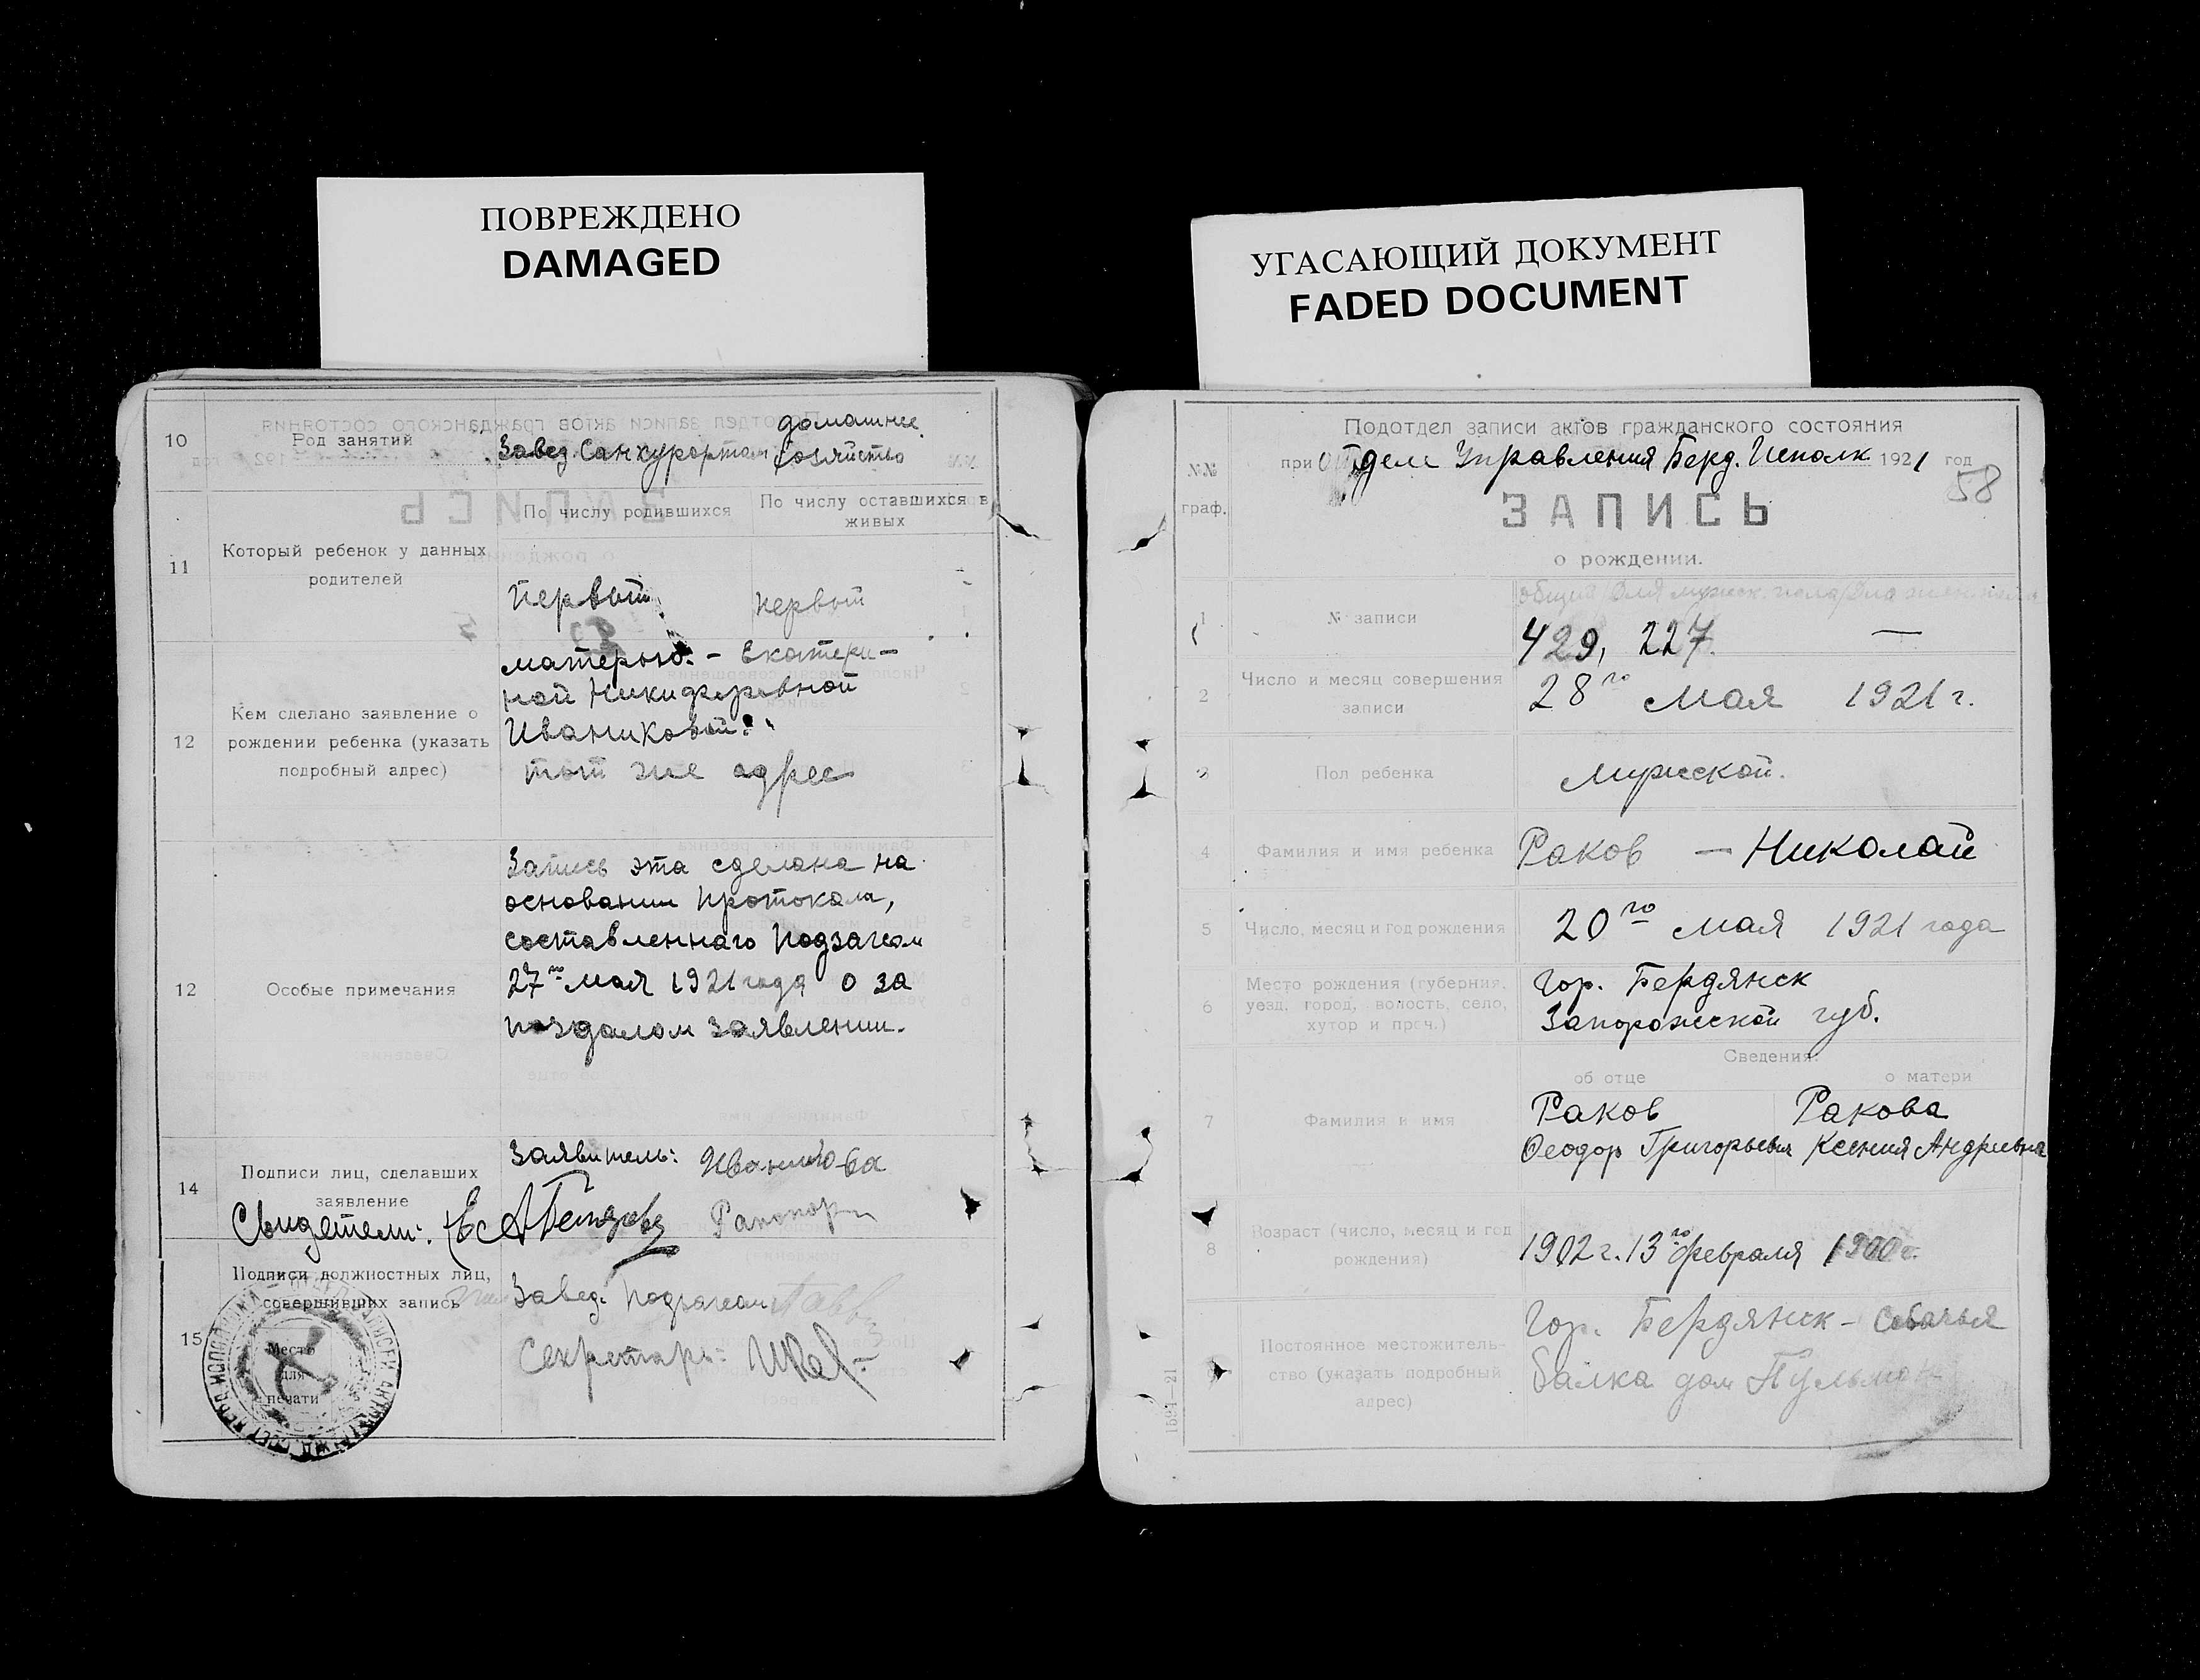 ПОВРЕЖДЕНО
DAMAGED
10
Род занятий
Завед. Санкурортом
домашнее
хозяйство
11
Который ребенок у данных
родителей
По числу родившихся
По числу оставшихся в
живых
первый
первый
12
Кем сделано заявление о
рождении ребенка (указать
подробный адрес)
матерью. – Екатери–
ной Никифоровной
Иваниковой.
тот же адрес
12
Особые примечания
Запись эта сделана на
основании протокола,
составленнаго Подзагсом
27го мая 1921 года о за
поздалом заявлении.
14
Подписи лиц, сделавших
заявление
Заявитель: Иваникова
Свидетели:
15
Подписи должностных лиц,
совершивших запись
Место
для
печати
Завед. Подзагсом
Секретарь:
УГАСАЮЩИЙ ДОКУМЕНТ
FADED DOCUMENT
№№
граф.
Подотдел записи актов гражданского состояния
при отделе Управления Берд. Исполк. 1921 год
58
ЗАПИСЬ
о рождении.
1
№ записи
общий/для мужск. пола/для женск. пола
429, 227. —
2
Число и месяц совершения
записи
28го мая 1921 г.
3
Пол ребенка
мужской.
4
Фамилия и имя ребенка
Раков — Николай
5
Число, месяц и год рождения
20го мая 1921 года
6
Место рождения (губерния,
уезд, город, волость, село,
хутор и проч.)
Гор. Бердянск
Запорожской губ.
Сведения:
об отце
о матери
7
Фамилия и имя
Раков
Феодор Григорьевич
Ракова
Ксения Андреевна
8
Возраст (число, месяц и год
рождения)
1902 г. 13го февраля 1900 г.
9
Постоянное местожитель-
ство (указать подробный
адрес)
Гор. Бердянск – Собачья
балка дом Пульман
1591—21